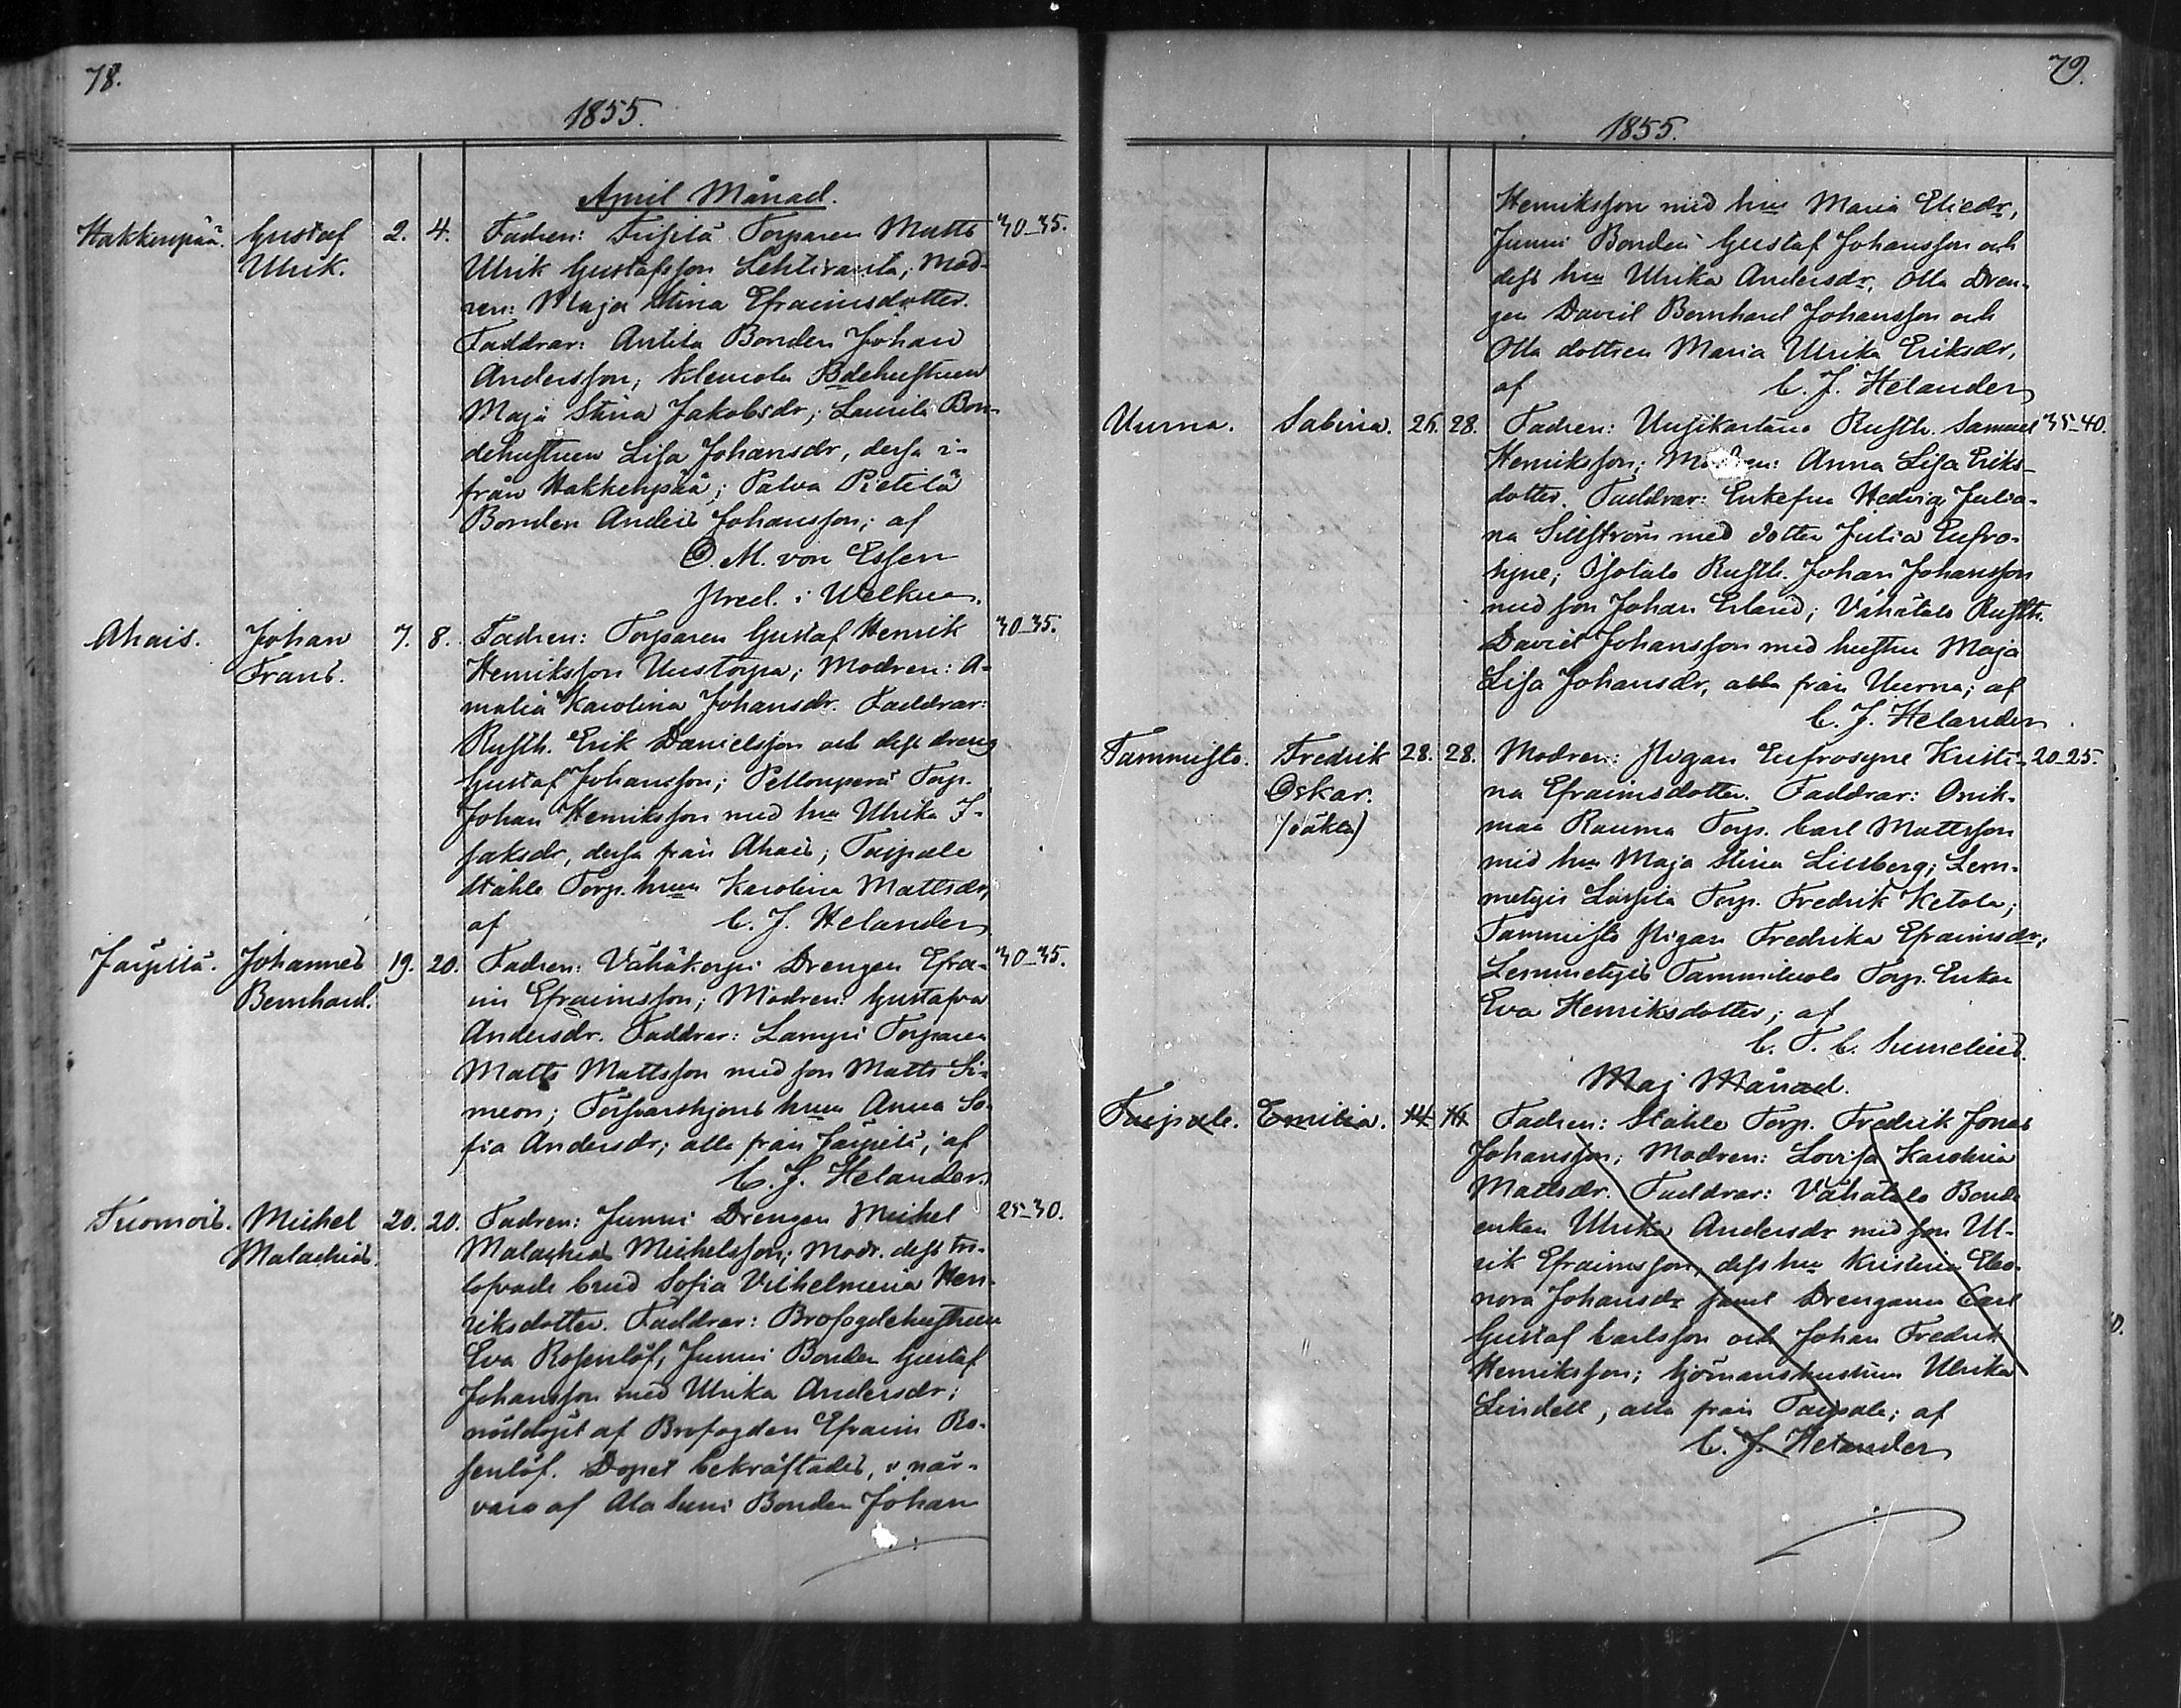 78.
1855.
April Månad.
Hakkenpää. Gustaf 2. 4. Fadren: Torparen Matts 30-35.
Ulrik. Ulrik Gustafsson Lehtiranta; Mod-
ren: Maja Stina Efraimsdotter.
Faddrar: Antila Bonden Johan
Andersson, Bdehustrun
Maja Stina Jakobsdr; Laurila Bon-
dehustrun Lisa Johansdr, dessa i-
från Hakkenpää; Palva Pietilä
Bonden Anders Johansson; af
O. M. von Essen
pred. i Welkua.
Ahais. Johan 7. 8. Fadren: Torparen Gustaf Henrik 30-35.
Frans. Henriksson Uustorpa; Modren: A-
malia Karolina Johansdr. Faddrar:
Rusth. Erik Danielsson och dess dreng
Gustaf Johansson; Pellonperä Torp.
Johan Henriksson med hu Ulrika I-
saksdr, dessa från Ahais; Taipale
Ståhle Torp. hun Karolina Mattsdr,
af C. J. Helander
Järpilä. Johannes 19. 20. Fadren: Vähäkorpi Drengen Efra- 30-35.
Bernhard. im Efraimsson; Modren: Gustafva
Andersdr. Faddrar: Lampi Torparen
Matts Mattsson med son Matts Si-
meon; hun Anna So-
fia Andersdr; alla från Järpilä; af
C. J. Helander.
Tuomois. Michel 20. 20. Fadren: Junni Drengen Michel 25-30.
Malachias. Malachias Michelsson; Modr. dess tro-
lofvade brud Sofia Vilhelmina Hen-
riksdotter. Faddrar: Brofogdehustrun
Eva Rosenlöf, Junni Bonden Gustaf
Johansson med Ulrika Andersdr;
nöddöpt af Brofogden Efraim Ro-
senlöf. Dopet bekräftades, i när-
varo af Ala Bonden Johan
79.
1855.
Henriksson med hu Maria Eliedr,
Junni Bonden Gustaf Johansson och
dess hu Ulrika Andersdr, Olla Dren-
gen David Bernhard Johansson och
Olla dottren Maria Ulrika Eriksdr,
af C. J. Helander
Uurna. Sabina. 26. 28. Fadren: Uusikartano Rusth. Samuel 35-40.
Henriksson; Modren: Anna Lisa Eriks-
dotter. Faddrar: Enkefru Hedvig Julia-
na Sillström med dotter Julia Eufro-
syne; Isotalo Rusth. Johan Johansson
med son Johan Erland; Vähätalo Rusth.
David Johansson med hustru Maja
Lisa Johansdr, alla från Uurna; af
C. J. Helander
Tammisto. Fredrik 28. 28. Modren: Pigan Eufrosyne Kristi- 20-25.
Oskar. na Efraimsdotter. Faddrar:
(oäkta) Rauma Torp. Carl Mattsson
med hu Maja Stina Lillberg; Lem-
metyis Torp. Fredrik Ketola;
Tammisto Pigan Fredrika Efraimsdr;
Lemmetyis Torp. Enkan
Eva Henriksdotter; af
C. T. C. Sumelius.
Maj Månad.
Taipale. Emilia. 14 16 Fadren: Ståhle Torp. Fredrik Jonas
Johansson; Modren: Lovisa Karolina
Mattsdr. Faddrar: Vähätalo Bonde
enkan Ulrika Andersdr med son Ul-
rik Efraimsson, dess hu Kristina Eleo-
nora Johansdr samt Drengarne Carl
Gustaf Carlsson och Johan Fredrik
Henriksson; Sjömanshustrun Ulrika
Lindell, alla från Taipale; af
C. J. Helander